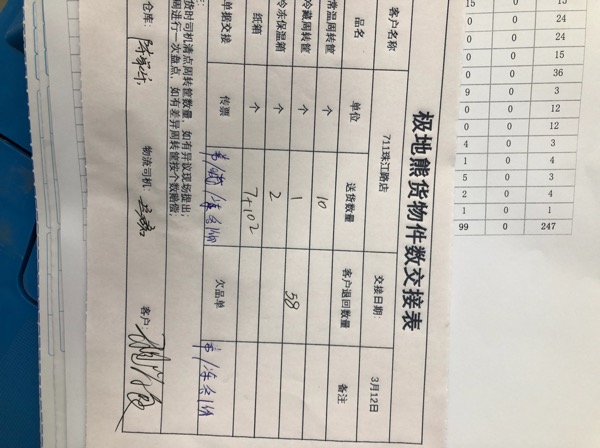 极地熊货物件数交接表
客户名称 711珠江路店 交接日期: 3月12日
品名 单位 送货数量 客户退回数量 备注
常温周转筐 个 10
冷藏周转筐 个 1 58
冷冻保温箱 个 2
纸箱 个 7+102
单据交接 传票 欠品单
货时司机清点周转筐数量，如有异议现场提出;
周进行一次盘点，如有差异周转筐按个数赔偿;
仓库: 物流司机: 客户:
15 0 15
0 0 24
0 0 24
0 0 15
0 0 36
9 0 3
0 0 12
0 0 12
4 0 3
1 0 4
5 0 3
2 0 4
1 0 1
99 0 247